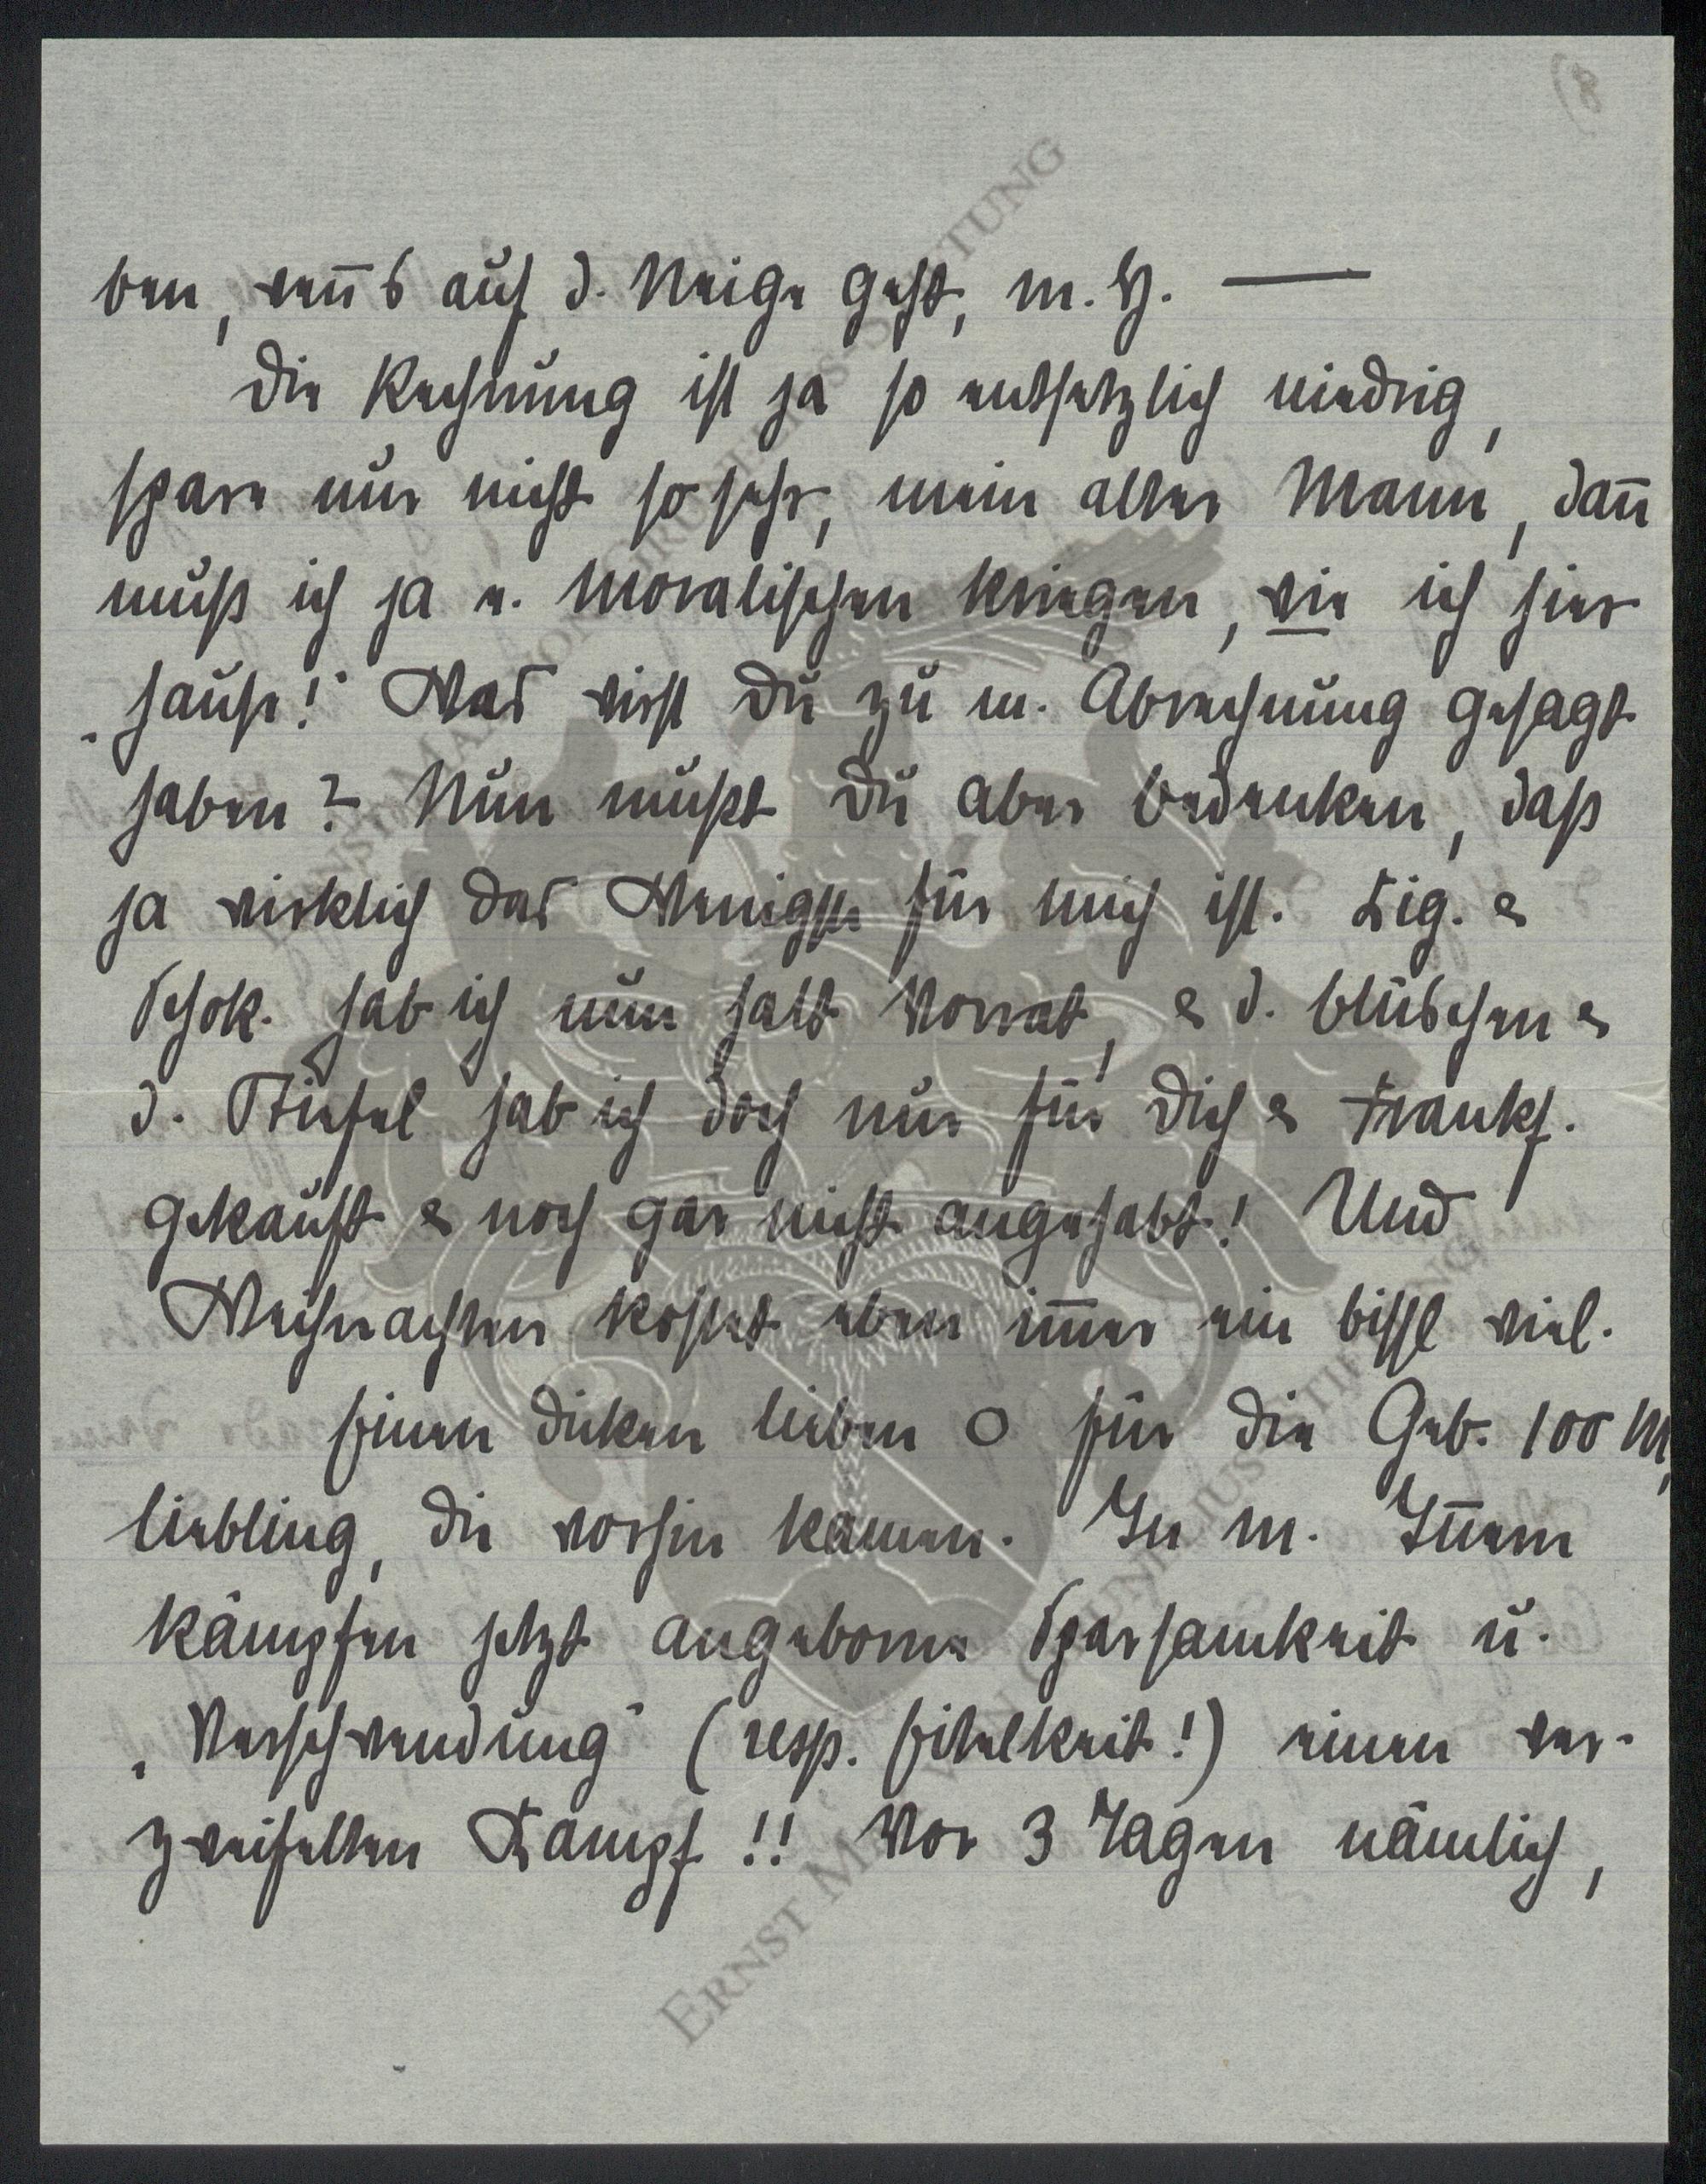 8)
ben, wen̄s auf d. Neige geht, m. H. —
Die Rechnung ist ja so entsetzlich niedrig,
spare nur nicht so sehr, mein alter Mann, dan̄
muss ich ja e. Moralischen kriegen, wie ich hier
„hause!" Was wirst Du zu m. Abrechnung gesagt
haben? Nun musst Du aber bedenken, dass
ja wirklich das Wenigste für mich ist. Zig. &
Schok. hab ich nun halt Vorrat, & d. Blüschen &
d. Stiefel hab ich doch nur für Dich & Frankf.
gekauft & noch gar nicht angehabt! Und
Weihnachten kostet eben im̄er ein bissl viel.
Einen dicken lieben O für die Geb. 100 M,
Liebling, die vorhin kamen. In m. In̄ern
kämpfen jetzt angeborne Sparsamkeit u.
„Verschwendung" (resp. Eitelkeit!) einen ver-
zweifelten Kampf!! Vor 3 Tagen nämlich,
ERNST MARTON CORNELIUS-STIFTUNG